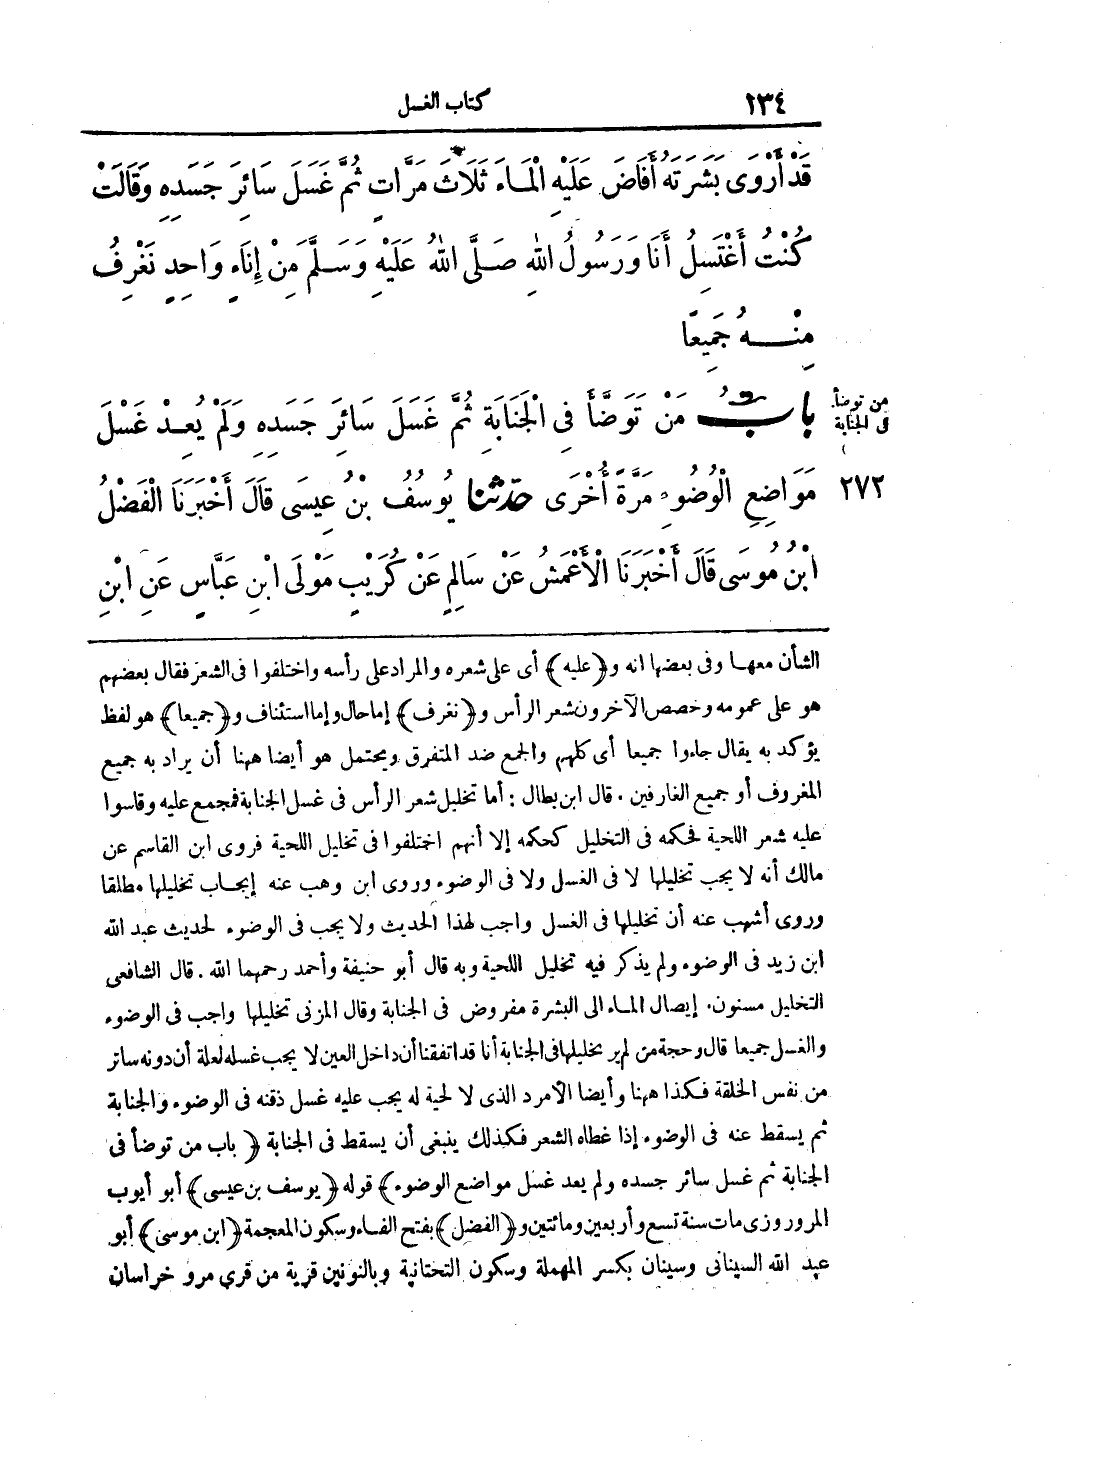 ١٣٤ كتاب الغسل
قَدْ أَرْوَى بَشَرَتَهُ أَفَاضَ عَلَيْهِ الْمَاءَ ثَلَاثَ مَرَّاتٍ ثُمَّ غَسَلَ سَائِرَ جَسَدِهِ وَقَالَتْ
كُنْتُ أَغْتَسِلُ أَنَا وَرَسُولُ اللهِ صَلَّى اللهُ عَلَيْهِ وَسَلَّمَ مِنْ إِنَاءٍ وَاحِدٍ نَغْرِفُ
مِنْهُ جَمِيعًا
من توضأ
في الجنابة
بَابُ مَنْ تَوَضَّأَ فِي الْجَنَابَةِ ثُمَّ غَسَلَ سَائِرَ جَسَدِهِ وَلَمْ يُعِدْ غَسْلَ
٢٧٢ مَوَاضِعِ الْوُضُوءِ مَرَّةً أُخْرَى حدّثنا يُوسُفُ بْنُ عِيسَى قَالَ أَخْبَرَنَا الْفَضْلُ
ابْنُ مُوسَى قَالَ أَخْبَرَنَا الْأَعْمَشُ عَنْ سَالِمٍ عَنْ كُرَيْبٍ مَوْلَى ابْنِ عَبَّاسٍ عَنِ ابْنِ
الشأن معها وفى بعضها انه و﴿عليه﴾ أى على شعره والمراد على رأسه واختلفوا فى الشعر فقال بعضهم
هو على عمومه وخصص الآخرون شعر الرأس و﴿نغرف﴾ إما حال وإما استئناف و﴿جميعا﴾ هو لفظ
يؤكد به يقال جاءوا جميعا أى كلهم والجمع ضد المتفرق ويحتمل هو أيضا ههنا أن يراد به جميع
المغروف أو جميع الغارفين . قال ابن بطال : أما تخليل شعر الرأس فى غسل الجنابة فمجمع عليه وقاسوا
عليه شعر اللحية فحكمه فى التخليل كحكمه إلا أنهم اختلفوا فى تخليل اللحية فروى ابن القاسم عن
مالك أنه لا يجب تخليلها لا فى الغسل ولا فى الوضوء وروى ابن وهب عنه إيجاب تخليلها مطلقا
وروى أشهب عنه أن تخليلها فى الغسل واجب لهذا الحديث ولا يجب فى الوضوء لحديث عبد الله
ابن زيد فى الوضوء ولم يذكر فيه تخليل اللحية وبه قال أبو حنيفة وأحمد رحمهما الله . قال الشافعى
التخليل مسنون. إيصال الماء الى البشرة مفروض فى الجنابة وقال المزنى تخليلها واجب فى الوضوء
والغسل جميعا قال وحجة من لم ير تخليلها فى الجنابة أنا قد اتفقنا أن داخل العين لا يجب غسله لعلة أن دونه ساتر
من نفس الخلقة فكذا ههنا وأيضا الأمرد الذى لا لحية له يجب عليه غسل ذقنه فى الوضوء والجنابة
ثم يسقط عنه فى الوضوء إذا غطاه الشعر فكذلك ينبغى أن يسقط فى الجنابة ﴿ باب من توضأ فى
الجنابة ثم غسل سائر جسده ولم يعد غسل مواضع الوضوء ﴾ قوله ﴿يوسف بن عيسى﴾ أبو أيوب
المروروزى مات سنة تسع وأربعين ومائتين و﴿الفضل﴾ بفتح الفاء وسكون المعجمة ﴿ابن موسى﴾ أبو
عبد الله السينانى وسينان بكسر المهملة وسكون التحتانية وبالنونين قرية من قرى مرو خراسان